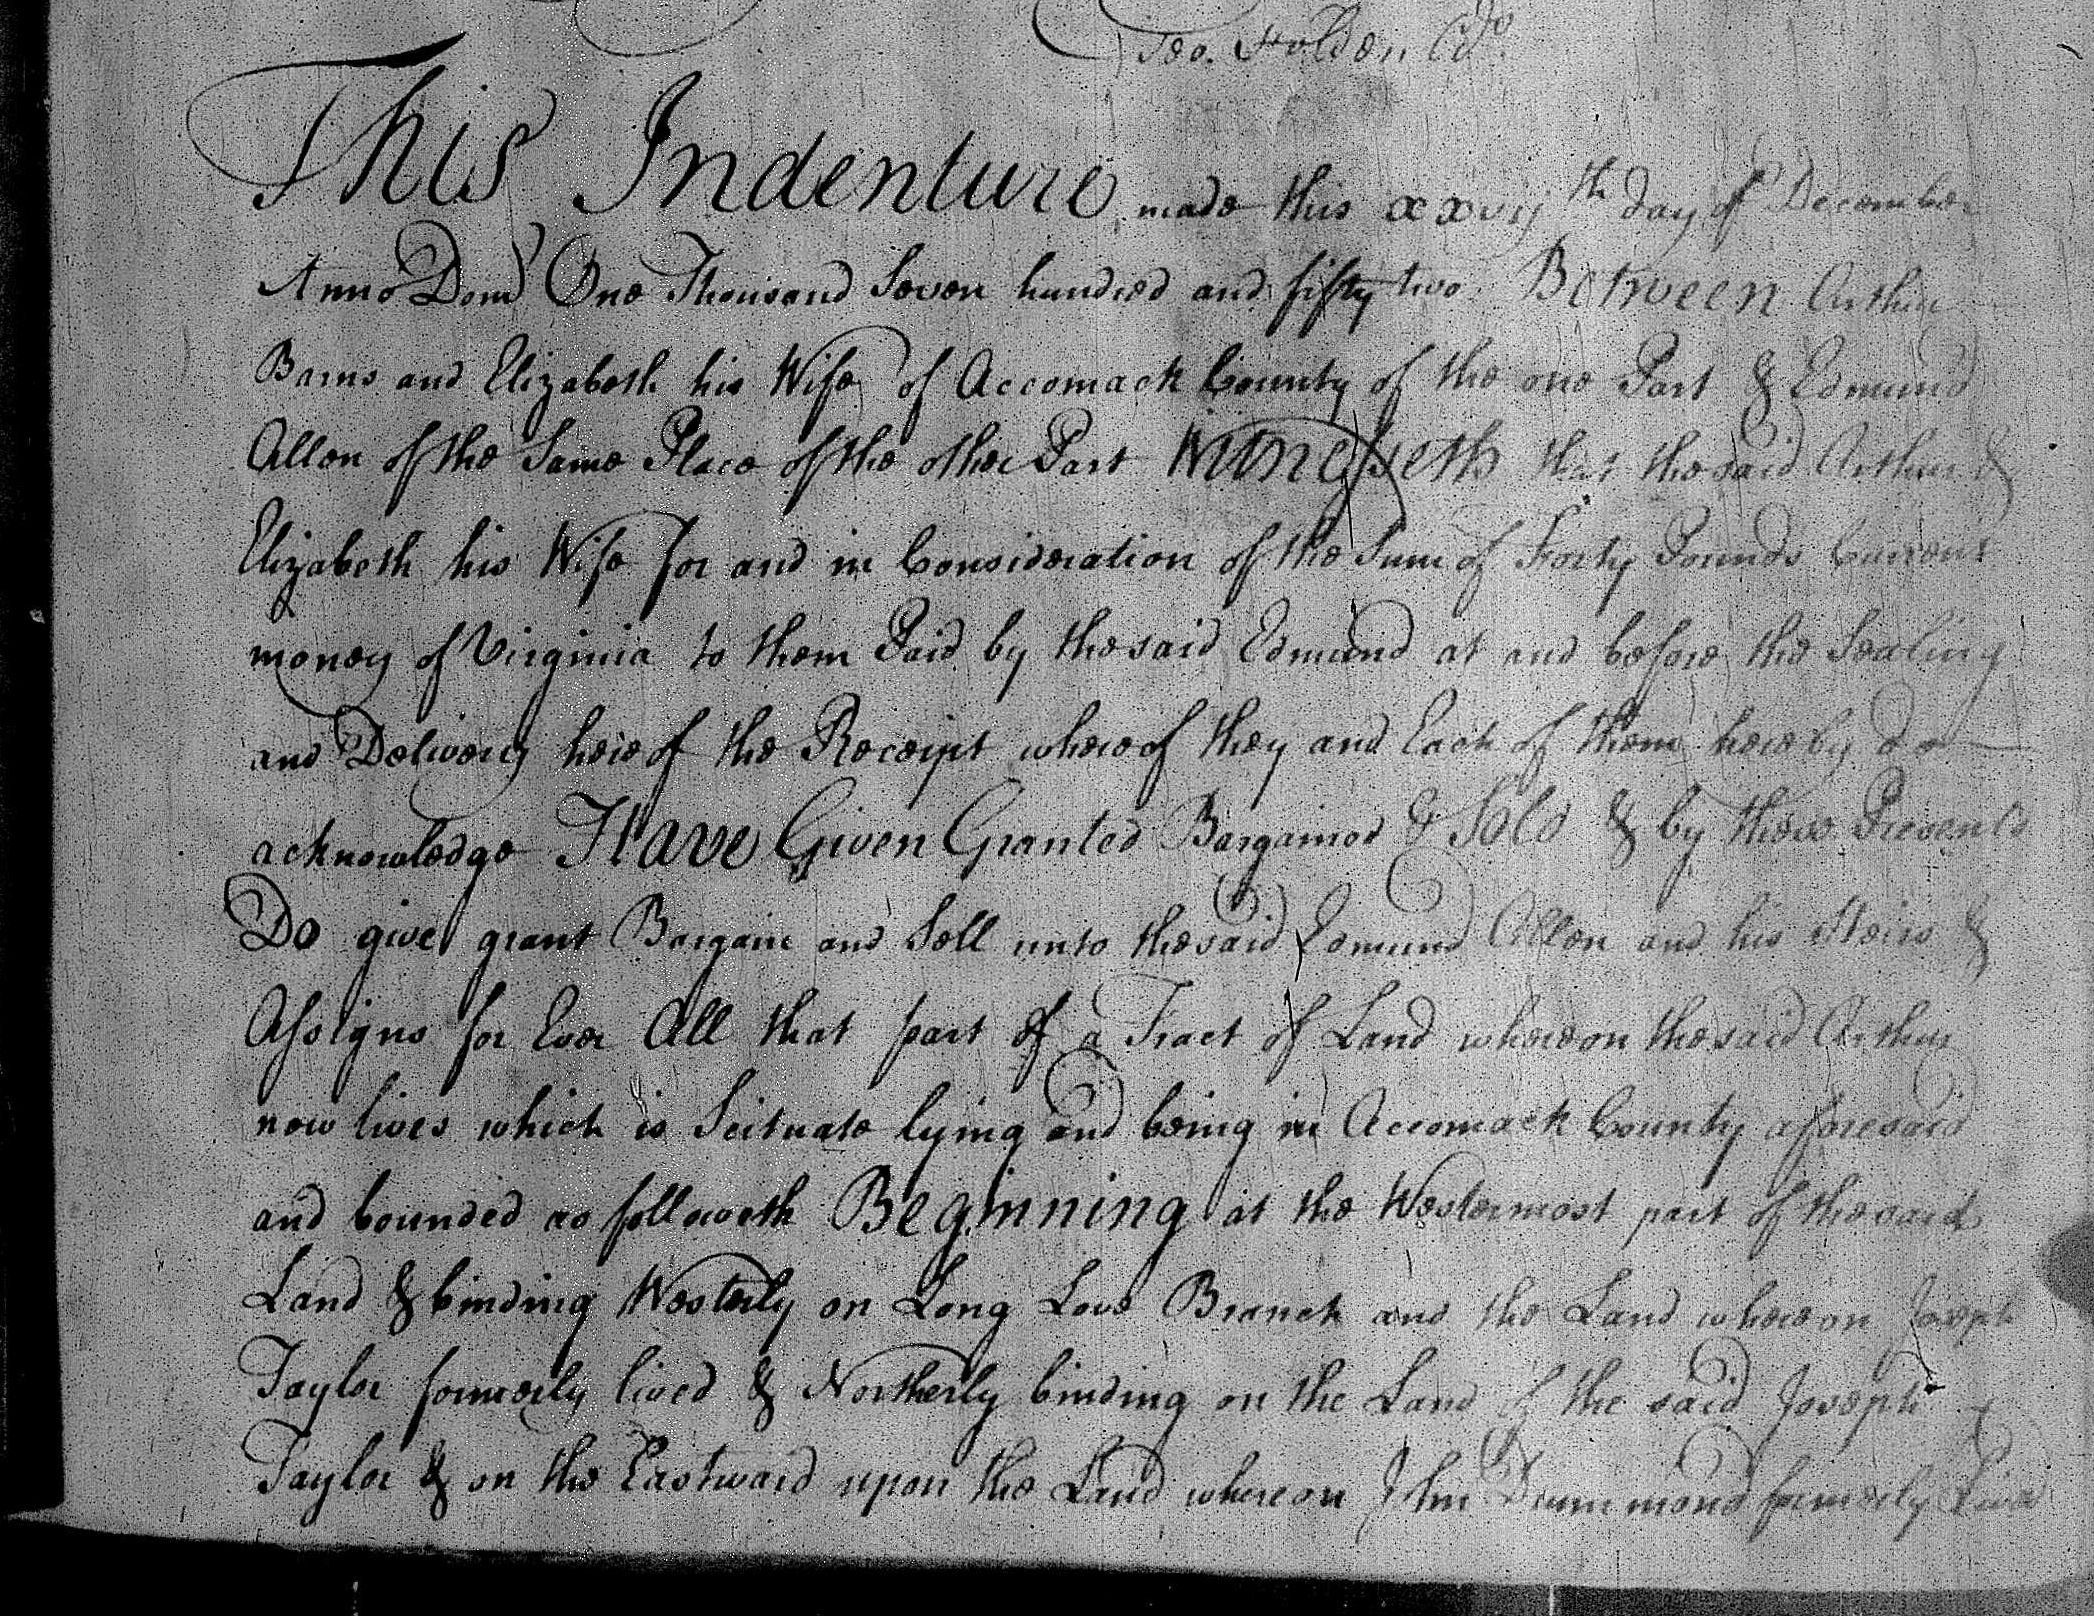 Geo. Holden
This Indenture made this xxvij th day of December
Anno Dom One Thousand Seven hundred and fifty two Between Arthur
Barns and Elizabeth his Wife of Accomack County of the one Part & Edmund
Allen of the Same Place of the other Part Witnesseth that the said Arthur &
Elizabeth his Wife for and in Consideration of the Sum of Forty Pounds Current
money of Virginia to them Paid by the said Edmund at and before the Sealing
and Delivery hereof the Receipt whereof they and Each of them hereby do
acknowledge Have Given Granted Bargained & Sold & by these Presents
Do give grant Bargain and Sell unto the said Edmund Allen and his Heirs &
Assigns for Ever All that part of a Tract of Land whereon the said Arthur
now lives which is Scituate lying and being in Accomack County aforesaid
and bounded as followeth Beginning at the Westermost part of the said
Land & binding Westerly on Long Love Branch and the Land whereon Joseph
Taylor formerly lived & Northerly binding on the Land of the said Joseph
Taylor & on the Eastward upon the Land whereon John Drummond formerly Lived